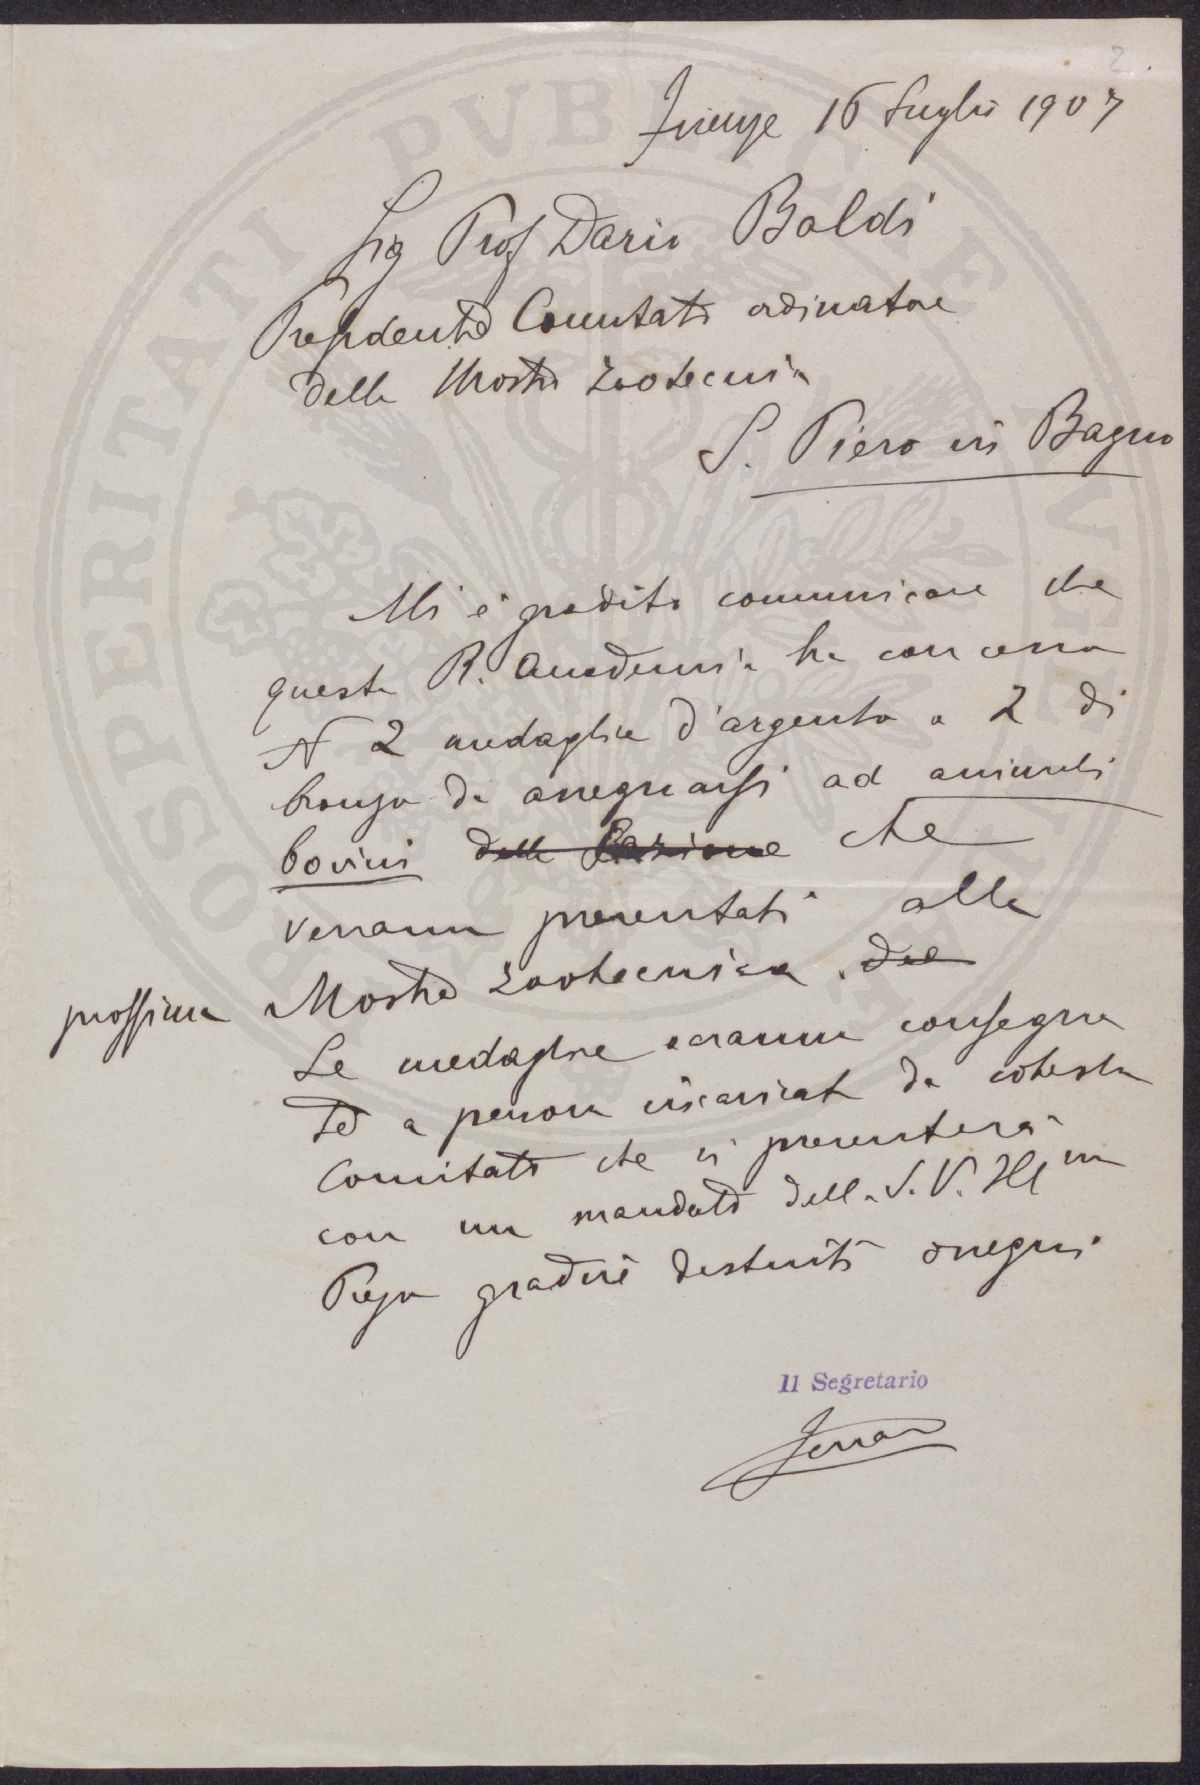 2.
Firenze 16 Luglio 1907
Sig Prof Dario Baldi
Presidente Comitato ordinatore
della Mostra Zootecnica
S. Piero in Bagno
Mi è gradito comunicare che
questa R. Accademia ha concesso
N 2 medaglie d'argento e 2 di
bronzo da assegnarsi ad animali
bovini della che
verranno presentati alla
prossima Mostra zootecnica. del
Le medaglie saranno consegna
te a persona incaricata da cotesto
Comitato che si presenterà
con un mandato della S. V. Ill ma
Prego gradire distinti ossequi
Il Segretario
PROSPERITATI PVBLICAE AVGENDAE